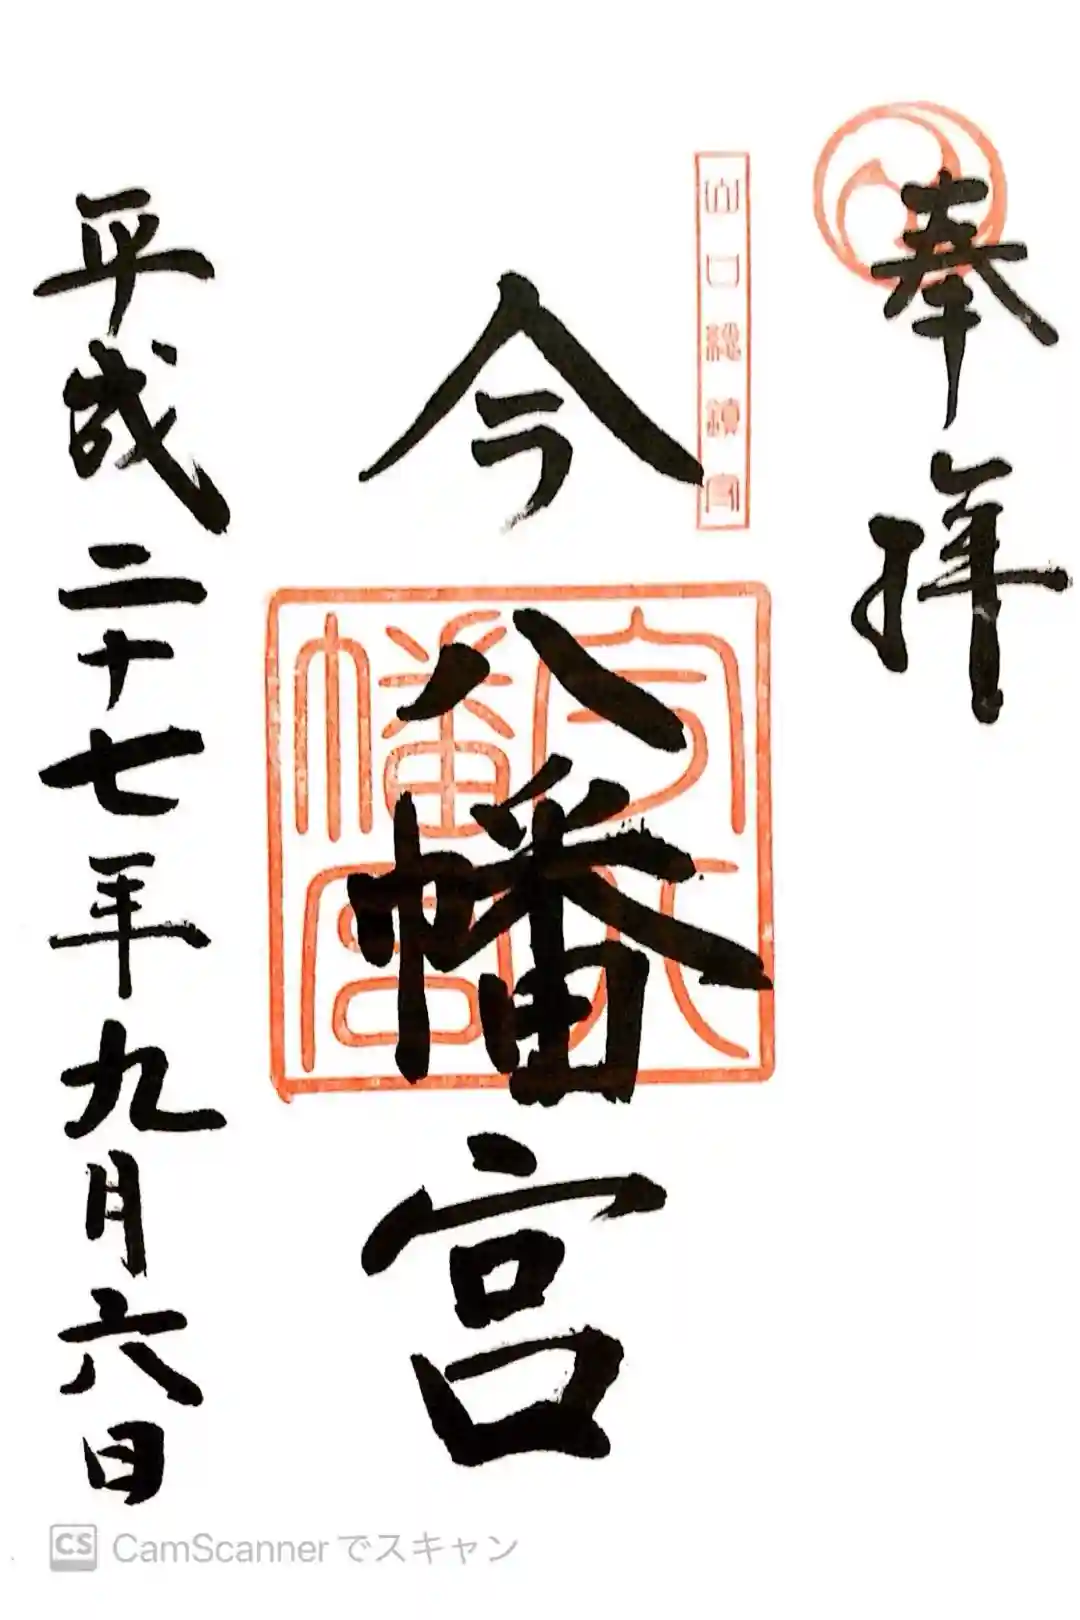 奉拝
山口総鎮守
今八幡宮
今八幡宮
平成二十七年九月六日
CS CamScannerでスキャン